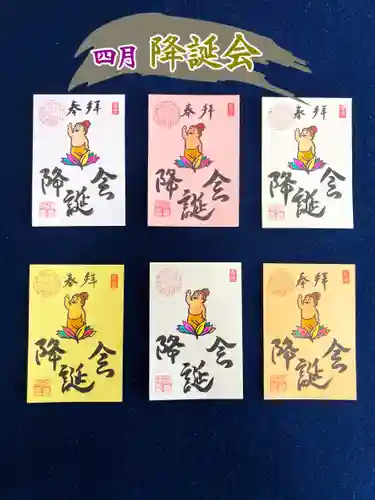 四月 降誕会
奉拝
降誕会
奉拝
降誕会
奉拝
降誕会
奉拝
降誕会
奉拝
降誕会
奉拝
降誕会